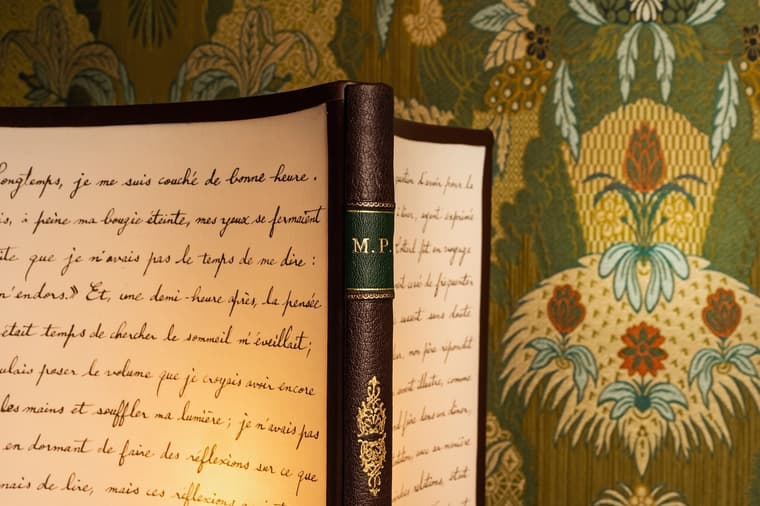 ongtemps, je me suis couché de bonne heure.
is, à peine ma bougie éteinte, mes yeux se fermaient
ite que je n'avais pas le temps de me dire :
m'endors. » Et, une demi-heure après, la pensée
était temps de chercher le sommeil m'éveillait;
ulais poser le volume que je croyais avoir encore
les mains et souffler ma lumière ; je n'avais pas
en dormant de faire des réflexions sur ce que
nais de lire, mais ces réflexions
M.P.
question d'avoir pour la
ayant exprimé
fût en voyage
cessé de fréquenter
eussent sans doute
mon père répondit
illustre, comme
dans un dîner,
avec sa manière
relations, était